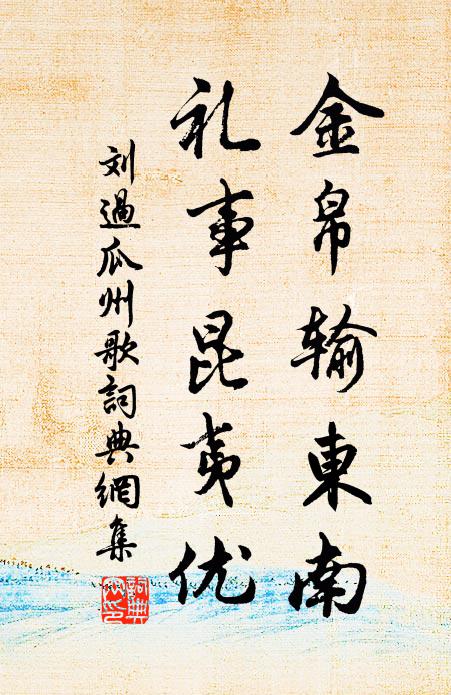 金帛输東南
礼事昆夷优
刘過瓜州歌詞典網集